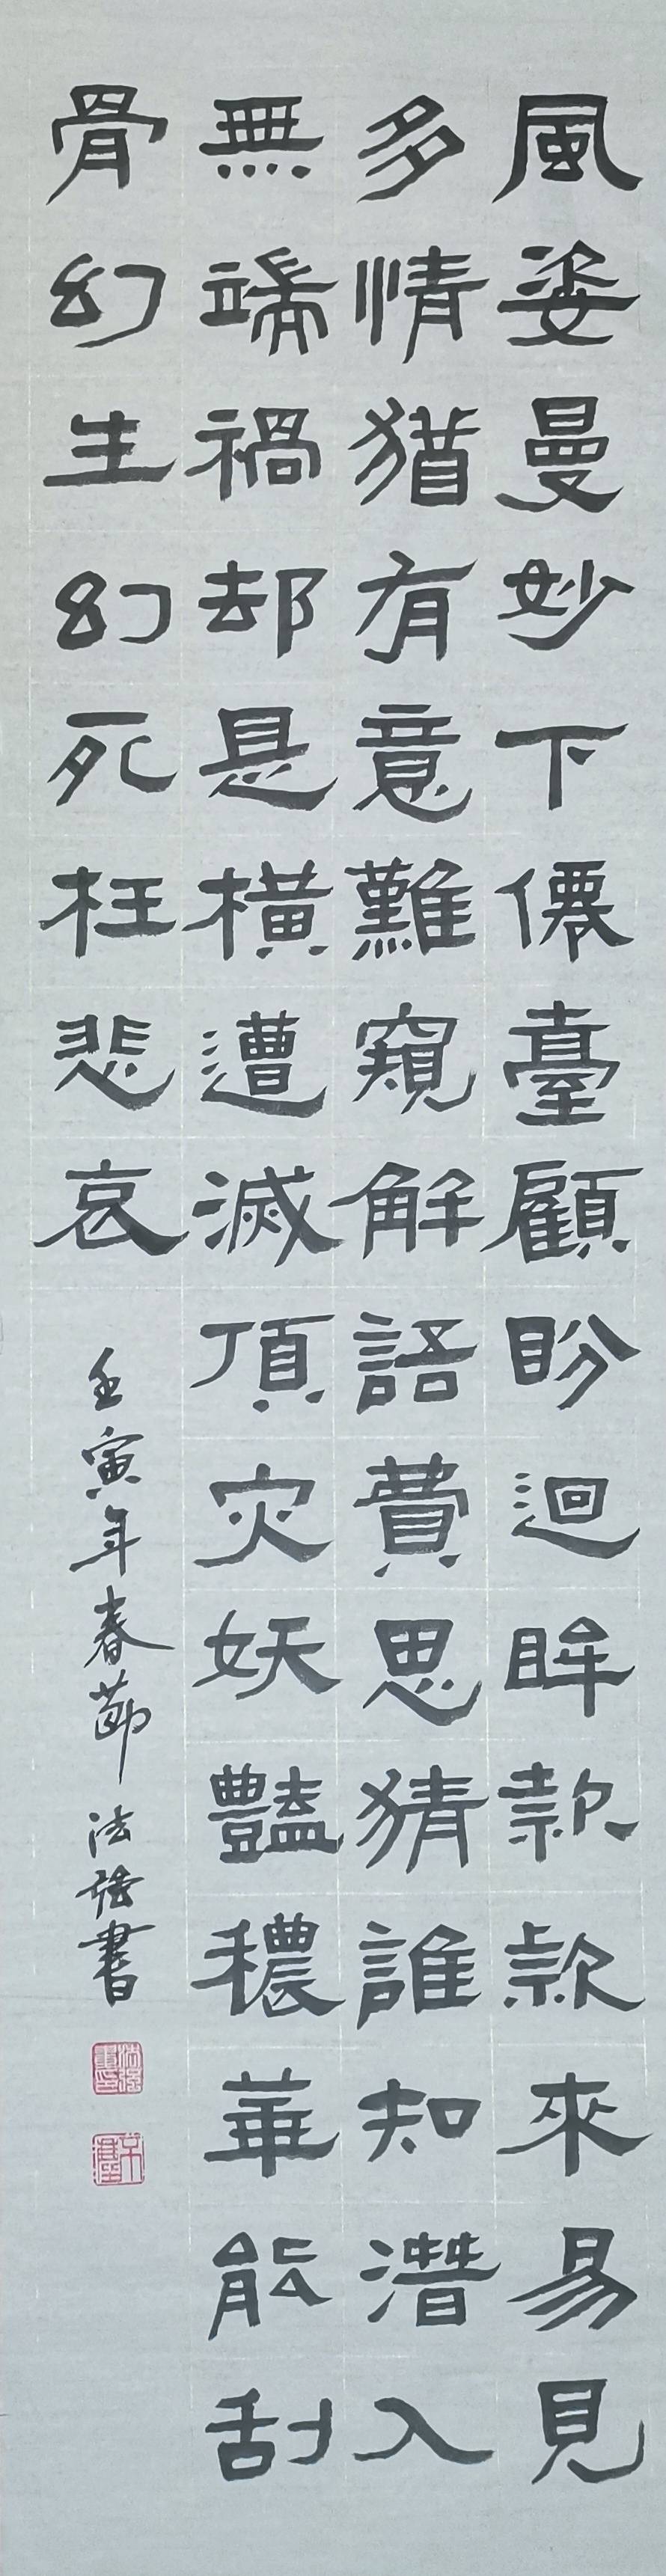 風姿曼妙下僊臺顧盼迴眸款款來易見
多情猶有意難窺解語費思猜誰知潛入
無端禍却是橫遭滅頂灾妖豔穠華能刮
骨幻生幻死枉悲哀
壬寅年春節法強書